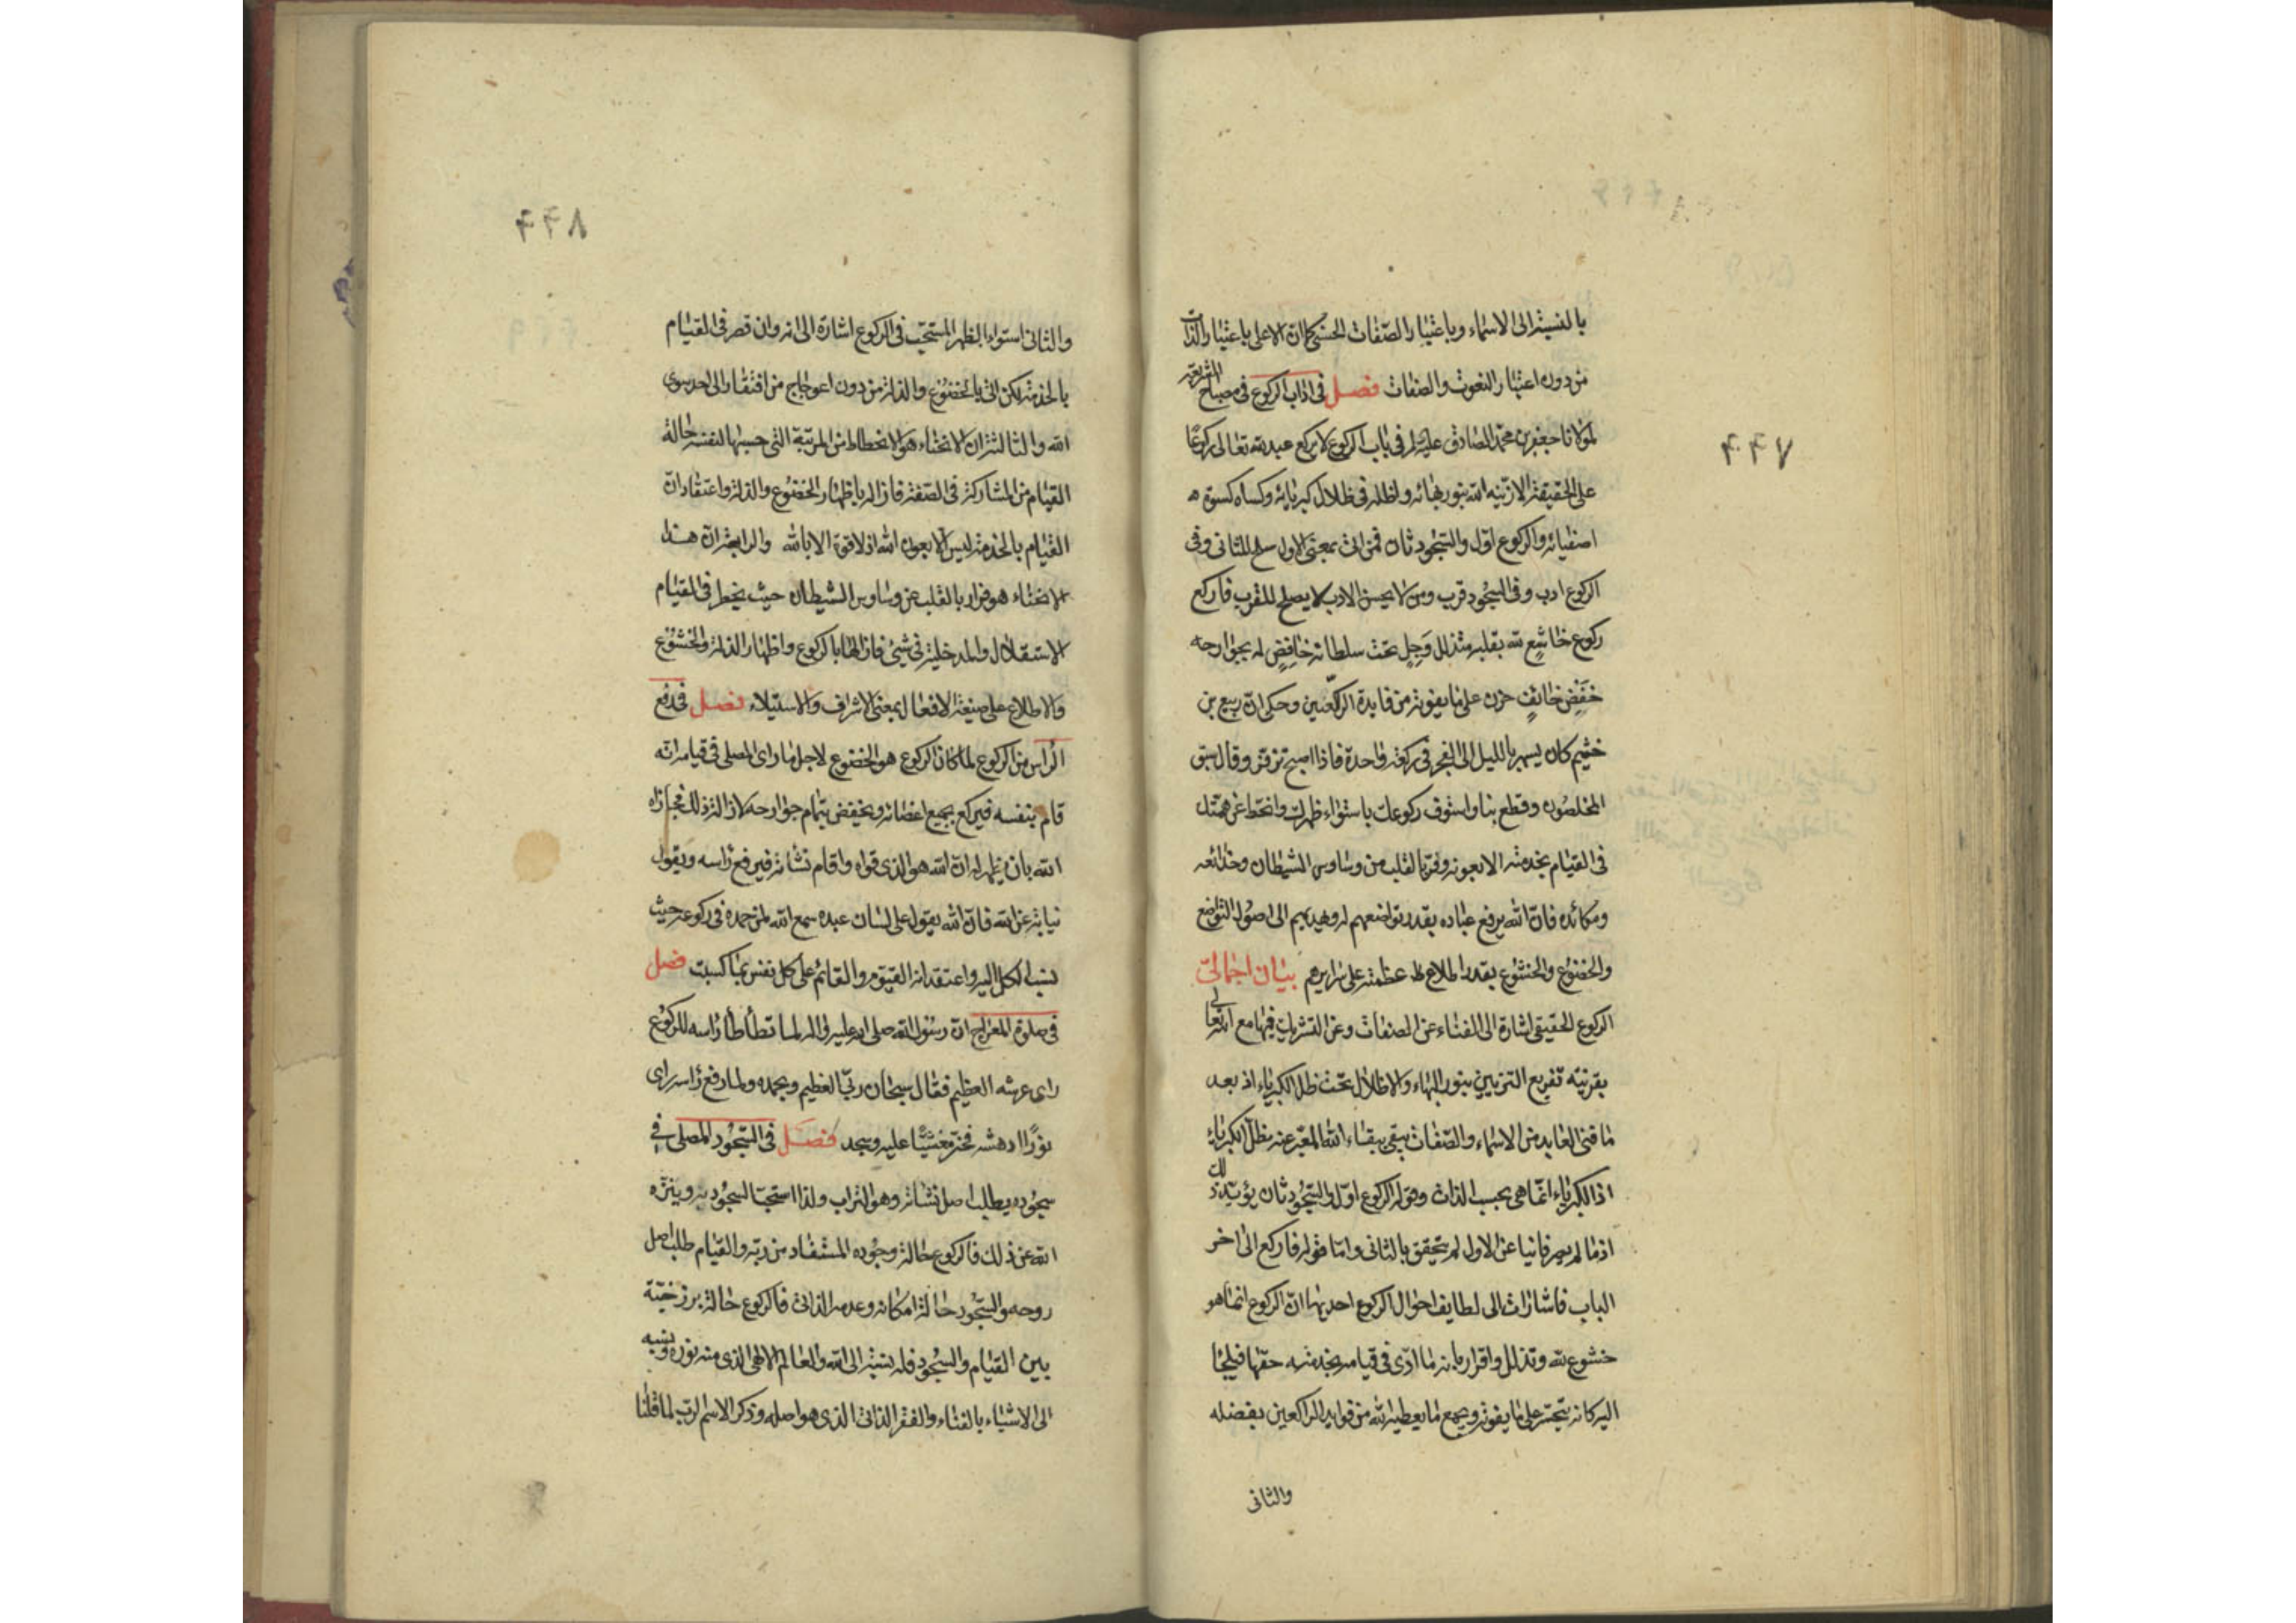 بالنسبة الى الاسماء وباعتبار الصفات الحسنى كما ان الاعلى باعتبار الذات
من دون اعتبار النعوت والصفات فصل فى اداب الركوع فى مصباح الشريعة
لمولانا جعفر بن محمد الصادق عليه السلم فى باب الركوع لا يركع عبد لله تعالى ركوعا
على الحقيقة الا زينه الله بنور بهائه واظله فى ظلال كبريائه وكساه كسوة
اصفيائه والركوع اول والسجود ثان فمن اتى بمعنى الاول صلح للثانى وفى
الركوع ادب وفى السجود قرب ومن لا يحسن الادب لا يصلح للقرب فاركع
ركوع خاشع لله بقلبه متذلل وجل تحت سلطانه خافض له بجوارحه
خفض خائف حزن على ما يفوته من فايدة الراكعين وحكى ان ربيع بن
خثيم كان يسهر بالليل الى الفجر فى ركعة واحدة فاذا اصبح تزفر وقال سبق
المخلصون وقطع بنا واستوف ركوعك باستواء ظهرك وانحط عن همتك
فى القيام بخدمته الا بعونه وفر بالقلب من وساوس الشيطان وخدائعه
ومكائده فان الله يرفع عباده بقدر تواضعهم له ويهديهم الى اصول التواضع
والخضوع والخشوع بقدر اطلاع عظمته على سرايرهم بيان اجمالى
الركوع الحقيقى اشارة الى الفناء عن الصفات وعن التشريك فيها مع الله تعالى
بقرينة تفريع التزيين بنور البهاء والاظلال تحت ظل الكبرياء اذ بعد
ما فنى العابد من الاسماء والصفات يبقى ببقاء الله المعبر عنه بظل الكبرياء
اذ الكبرياء انما هى بحسب الذات وقوله الركوع اول والسجود ثان يؤيد ذلك
اذ ما لم يصر فانيا عن الاول لم يتحقق بالثانى واما قوله فاركع الى اخر
الباب فاشارات الى لطايف احوال الركوع احديها ان الركوع انما هو
خشوع لله وتذلل واقرار بانه ما ادى فى قيامه بخدمته حقها فيلجأ
اليه كانه يتحسر على ما يفوته ويجمع ما يعطيه الله من فوايد الراكعين بفضله
والثانى
٤٤٧
٨٤٤
والثانى استواء الظهر المستحب فى الركوع اشارة الى انه وان قصر فى القيام
بالخدمة لكن اتى بالخضوع والذلة من دون اعوجاج من افتقار الى احد سوى
الله والثالثة ان الانحناء هو الانحطاط من المرتبة التى حسبها لنفسه حالة
القيام من المشاركة فى الصفة فازاله باظهار الخضوع والذلة واعتقاد ان
القيام بالخدمة ليس الا بعون الله اذ لا قوة الا بالله والرابعة ان هذا
الانحناء هو فرار بالقلب عن وساوس الشيطان حيث يخطر فى القيام
الاستقلال والمدخلية فى شيئ فازالها بالركوع واظهار الذلة والخشوع
والاطلاع على صيغة الافعال بمعنى الاشراف والاستيلاء فصل فى رفع
الراس من الركوع لما كان الركوع هو الخضوع لاجل ما راى المصلى فى قيامه انه
قام بنفسه فيركع بجميع اعضائه ويخفض بتمام جوارحه لازالة ذلك فجازاه
الله بان يظهر له ان الله هو الذى قواه واقام نشأته فيرفع رأسه ويقول
نيابة عن الله فان الله يقول على لسان عبده سمع الله لمن حمده فى ركوعه حيث
نسب الكل اليه واعتقد انه القيوم والقائم على كل نفس بما كسبت فصل
فى صلوة المعراج ان رسول الله صلى الله عليه واله لما تطأطأ رأسه للركوع
راى عرشه العظيم فقال سبحان ربى العظيم وبحمده ولما رفع رأسه راى
نورا ادهشه فخر مغشيا عليه وسجد فصل فى السجود المصلى فى
سجوده يطلب اصل نشأته وهو التراب ولذا استحب السجود به وينزه
الله عن ذلك فالركوع حالة وجوده المستفاد من ربه والقيام طلب اصل
روحه والسجود حالة امكانه وعدمه الذاتى فالركوع حالة برزخية
بين القيام والسجود فله نسبة الى الله والعالم الالهى الذى منه نوره ونسبه
الى الاشياء بالفناء والفقر الذاتى الذى هو اصله وذكر الاسم الرب لما قلنا